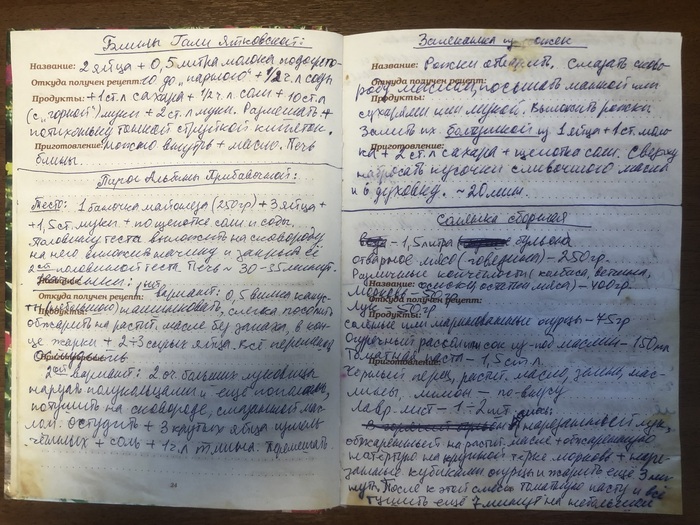 Блины Гали Ятковской:
Название: 2 яйца + 0,5 литра молока подогр-
Откуда получен рецепт: до "парного" + 1/2 ч.л соды
Продукты: +1 ст.л сахара + 1/2 ч.л соли + 10 ст.л
(с "горкой") муки + 2 ст.л муки. Размешать +
потихоньку тонкой струйкой кипяток.
Приготовление: можно внутрь + масло. Печь
блины.
Пирог Альбины Прибавочной:
Тесто: 1 баночка майонеза (250гр) + 3 яйца +
+1,5 ст. муки + по щепотке соли и соды.
Половину теста выложить на сковороду
на него выложить начинку и закрыть её
2ой половинкой теста. Печь ~ 30-35 минут.
Откуда получен рецепт: 1ый вариант: 0,5 вилка капус-
ты (небольшой) нашинковать, слегка посолить
Продукты:
обжарить на растит. масле без запаха, в кон-
це жарки + 2÷3 сырых яйца. Всё перемешать
2ой вариант: 2 ст. больших луковицы
нарезать полукольцами и ещё пополам,
потушить на сковороде, смазанной мас-
лом. Остудить + 3 крутых яйца измель-
чённых + соль + 1 ч.л тмина. Перемешать.
24
Запеканка из рожек
Название: Рожки отварить. Смазать сково-
Откуда получен рецепт:
роду маслом, посыпать манкой или
Продукты:
сухарями или мукой. Выложить рожки
Залить их болтушкой из 1 яйца + 1 ст. моло-
Приготовление:
ка + 2 ст.л сахара + щепотка соли. Сверху
набросать кусочки сливочного масла
и в духовку. ~ 20 мин.
Солянка сборная
- 1,5 литра бульона
отварное мясо (говядина) - 250гр.
Различные копчёности (колбаса, ветчина,
Название: сосиски, остатки мяса) - 400гр.
Морковь - 50гр
Откуда получен рецепт:
Лук - 50гр
Продукты:
солёные или маринованные огурцы - 45гр
Огуречный рассол или сок из-под маслин - 150мл
Томатная паста - 1,5 ст.л.
Приготовление:
Чёрный перец, растит. масло, зелень, мас-
лины, лимон - по вкусу
Лавр. лист - 1÷2шт.
нарезанный лук,
обжаренный на растит. масле + обжаренную
натёртую на крупной тёрке морковь + наре-
занные кубиками огурцы и жарить ещё 3 ми-
нуты. После к этой смеси томатную пасту и всё
тушить ещё 7 минут на небольшом